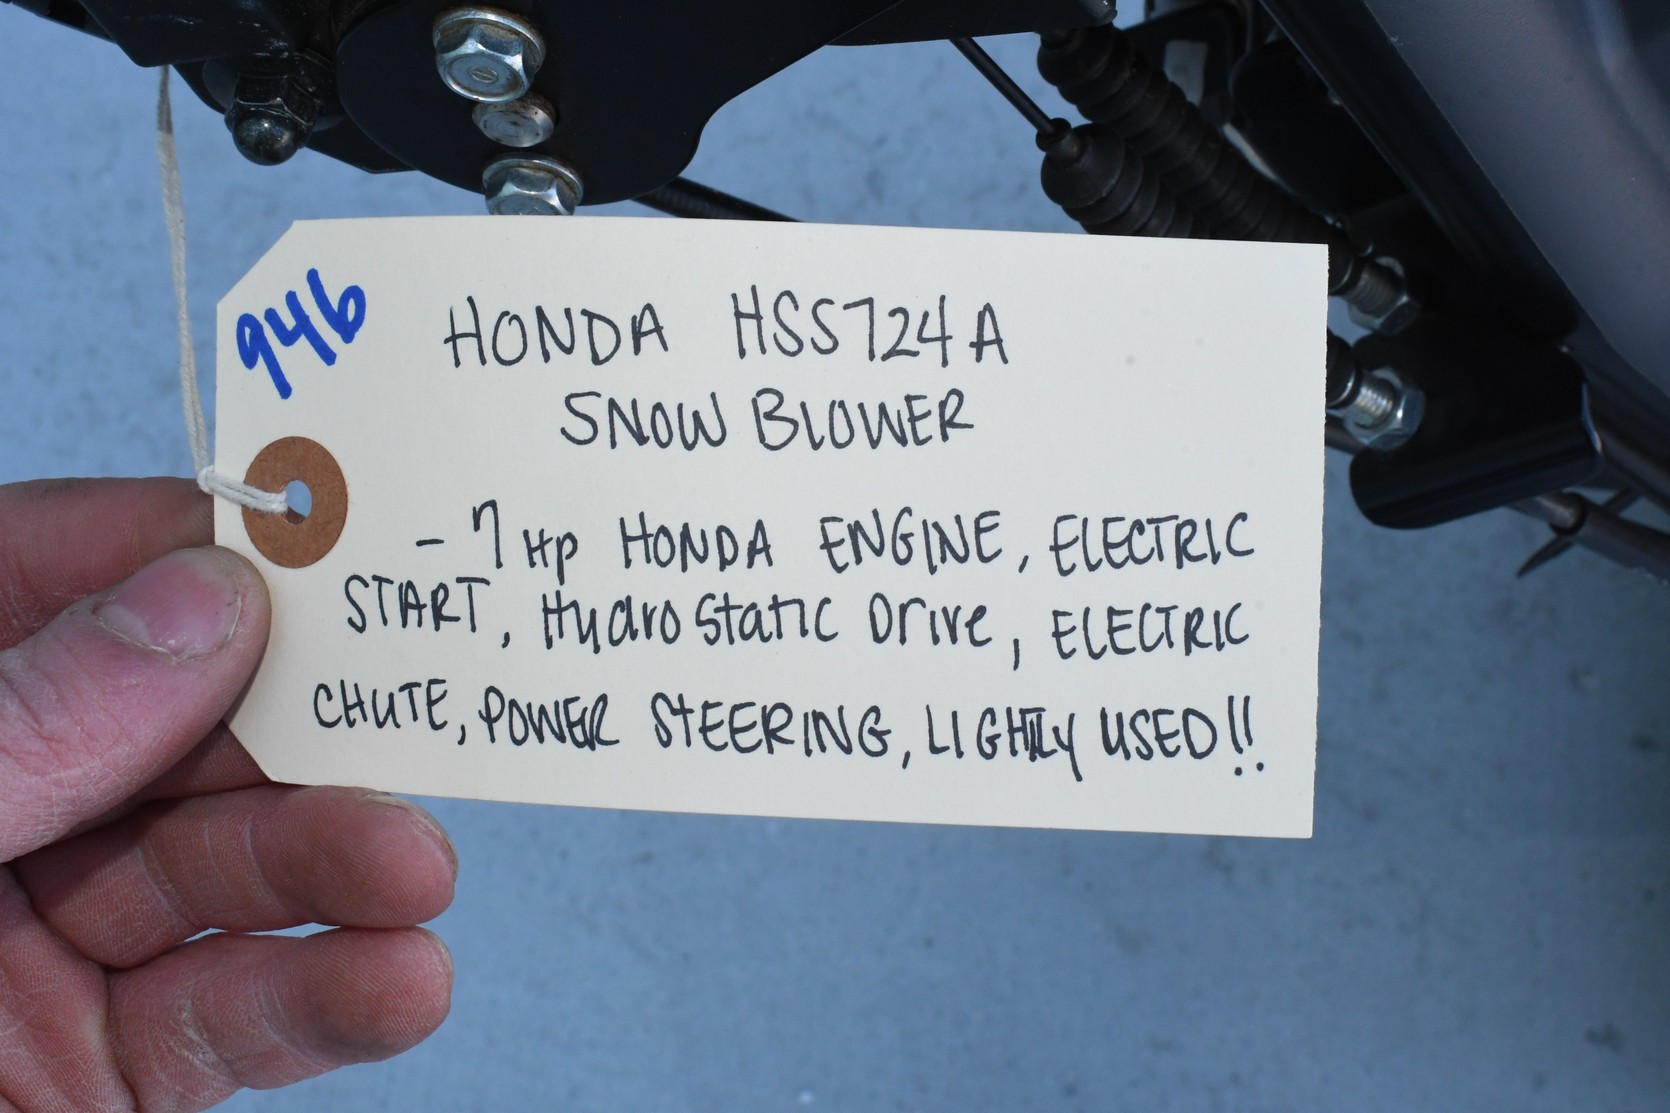 946
HONDA HSS724A
SNOW BLOWER
- 7 HP HONDA ENGINE, ELECTRIC
START, HydroStatic Drive, ELECTRIC
CHUTE, POWER STEERING, LIGHTLY USED!!